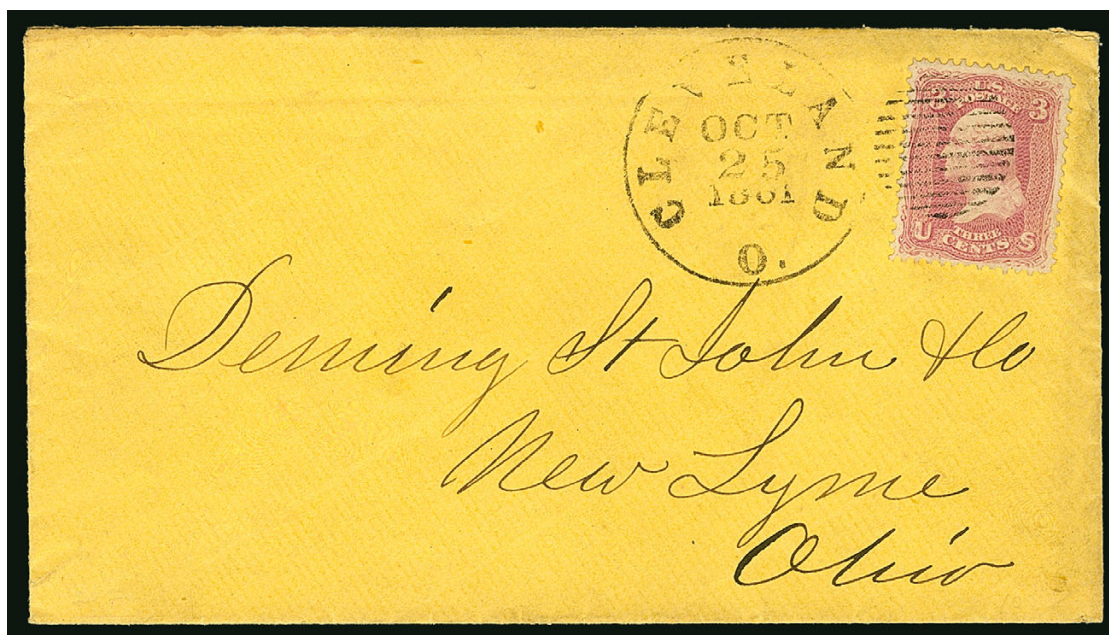 CLEVELAND
OCT
25
1861
O.
3 U.S. 3
POSTAGE
U THREE S
CENTS
Deming St John & Co
New Lyme
Ohio